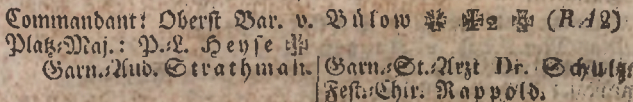 Commandant: Oberst Bar. v. Bülow ✠ ✠2 ✠ (RA2)
Platz-Maj.: P.-L. Heyse ✠
Garn.-Aud. Strathman. Garn.-St.-Arzt Dr. Schultz.
Fest.-Chir. Rappold.